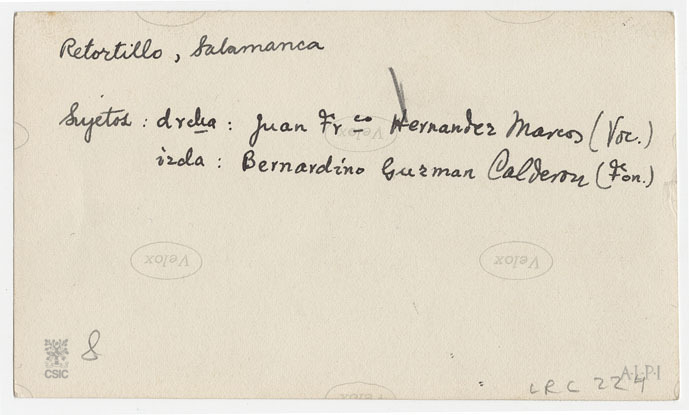 Retortillo, Salamanca
Sujetos : drcha : Juan Frco Hernandez Marcos (Voc.)
izda : Bernardino Guzman Calderon (Fon.)
Velox
Velox Velox
8
CSIC
A·L·P·I
LRC 224